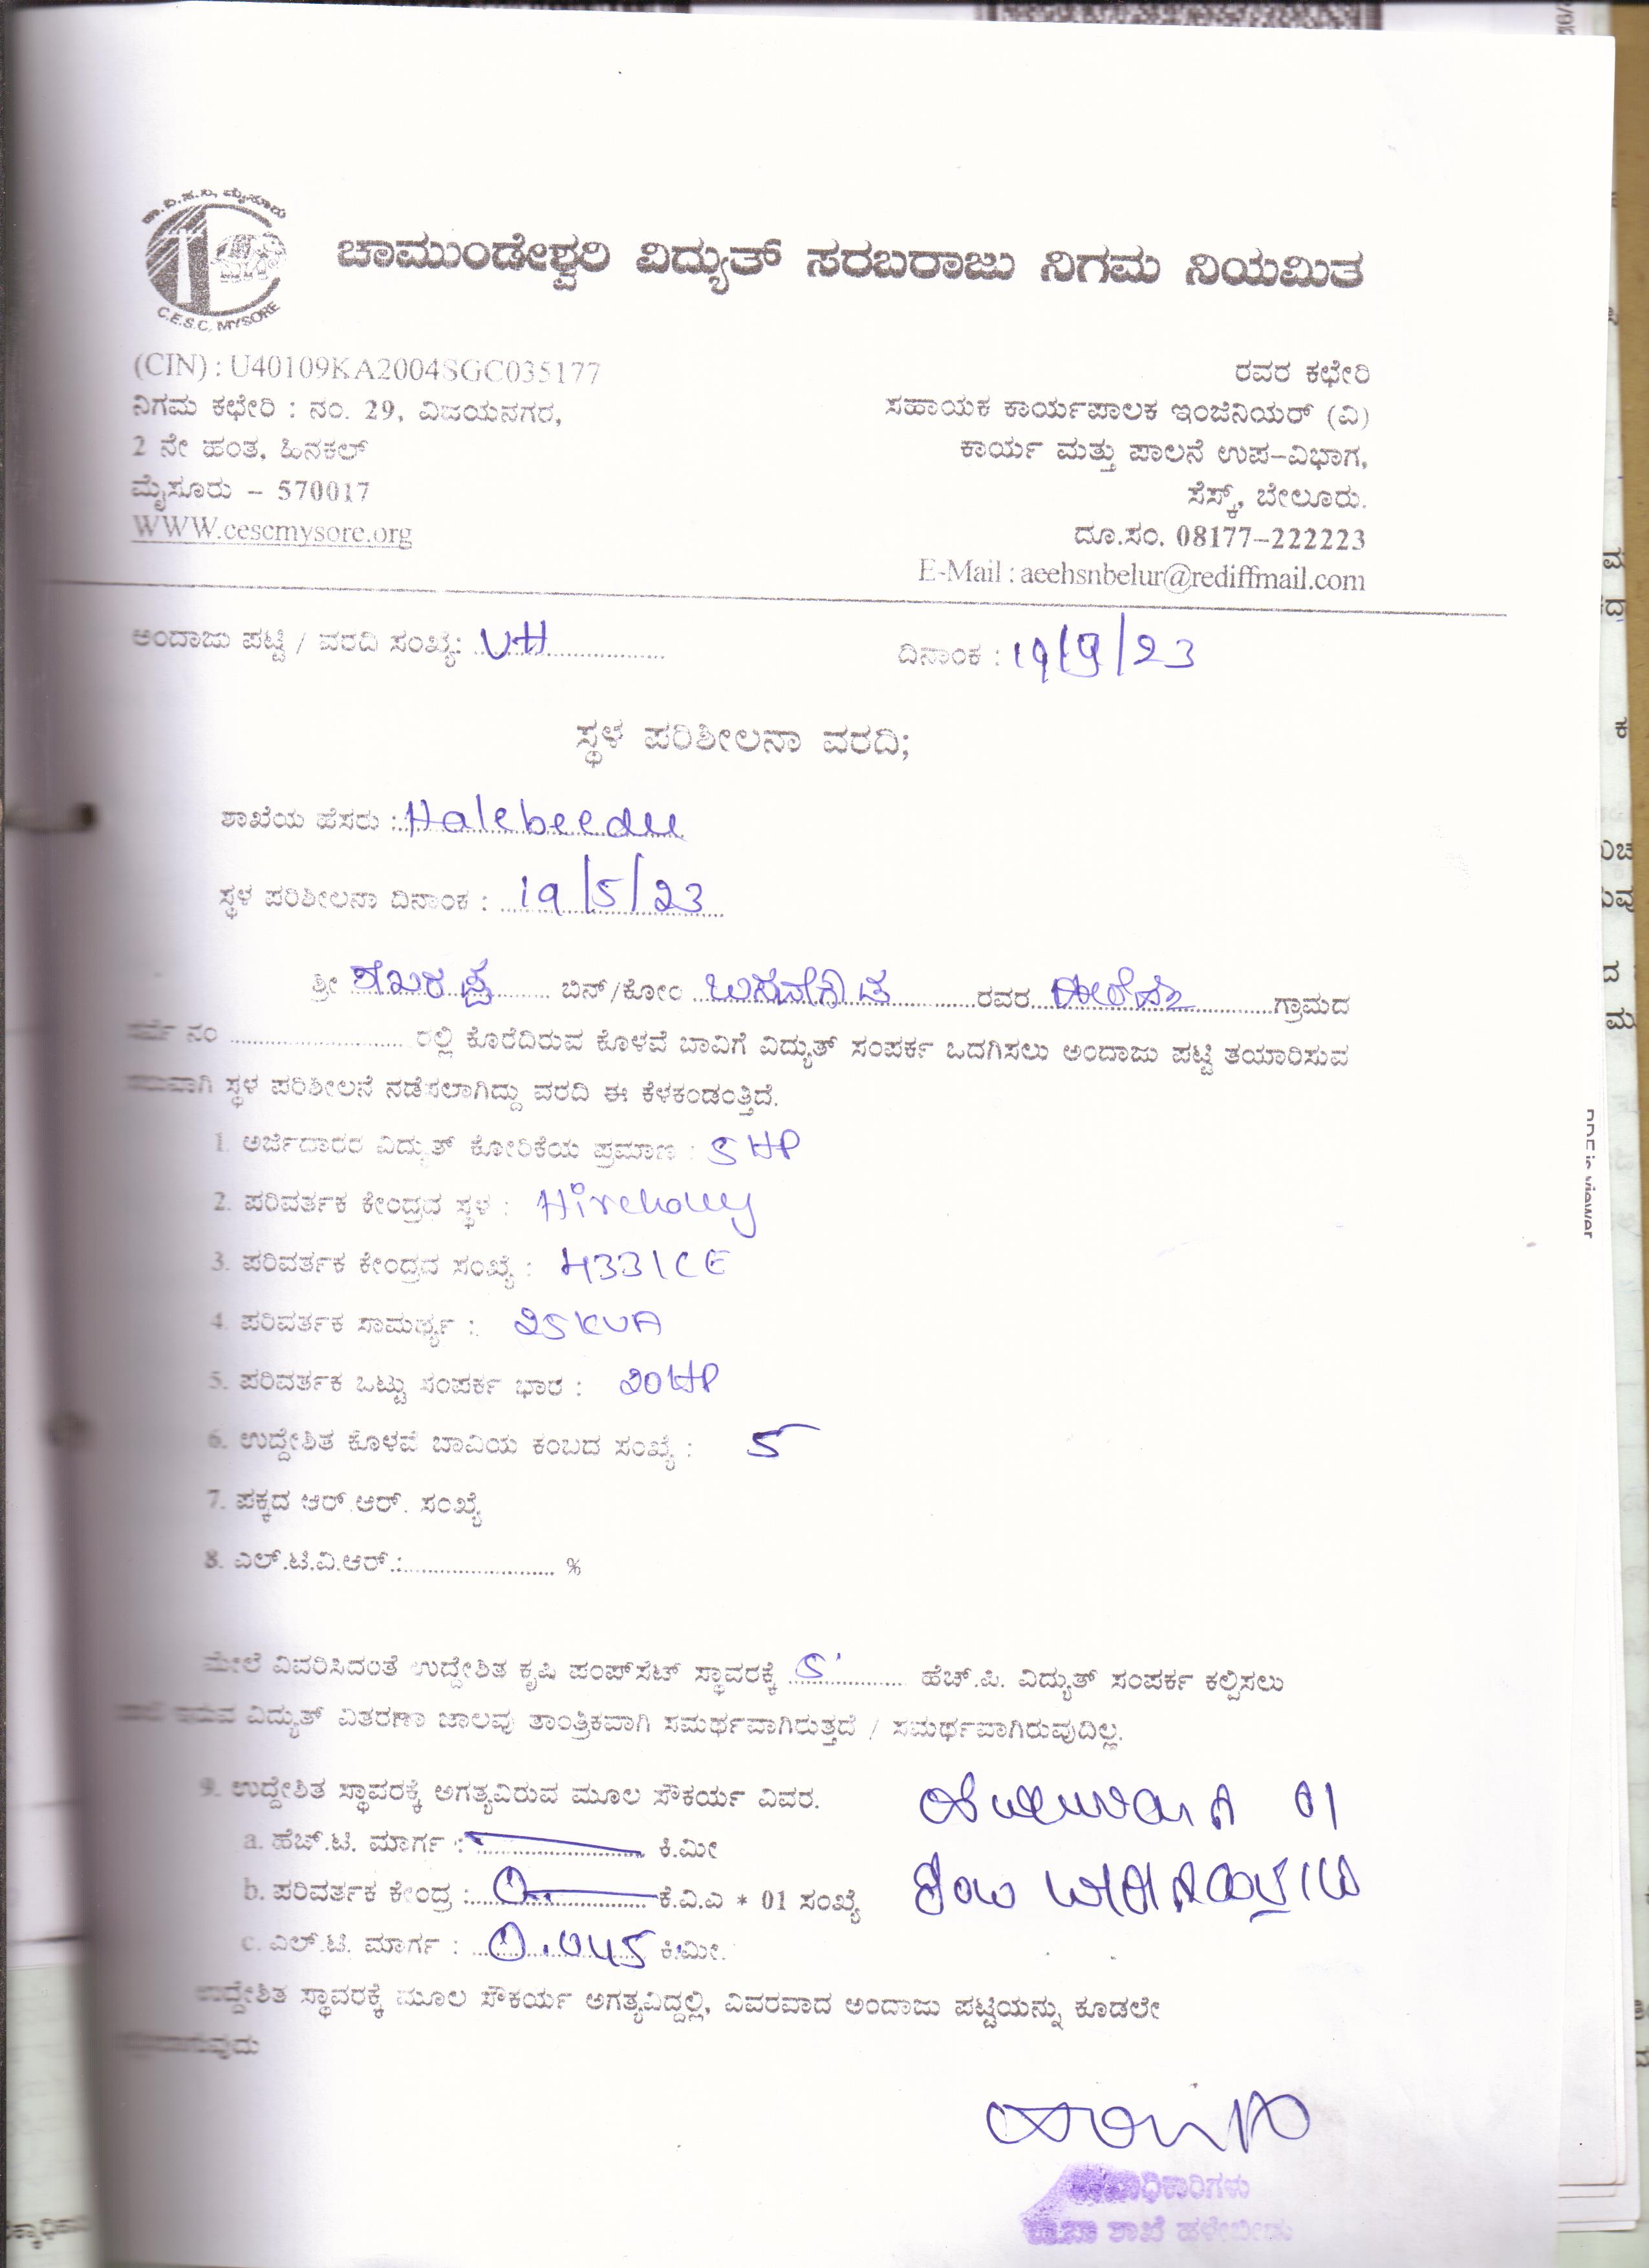 ಚಾ.ವಿ.ಸ.ನಿ, ಮೈಸೂರು
C.E.S.C. MYSORE
ಚಾಮುಂಡೇಶ್ವರಿ ವಿದ್ಯುತ್ ಸರಬರಾಜು ನಿಗಮ ನಿಯಮಿತ
(CIN) : U40109KA2004SGC035177
ನಿಗಮ ಕಛೇರಿ : ನಂ. 29, ವಿಜಯನಗರ,
2 ನೇ ಹಂತ, ಹಿನಕಲ್
ಮೈಸೂರು – 570017
WWW.cescmysore.org
ರವರ ಕಛೇರಿ
ಸಹಾಯಕ ಕಾರ್ಯಪಾಲಕ ಇಂಜಿನಿಯರ್ (ವಿ)
ಕಾರ್ಯ ಮತ್ತು ಪಾಲನೆ ಉಪ-ವಿಭಾಗ,
ಸೆಸ್ಕ್, ಬೇಲೂರು.
ದೂ.ಸಂ. 08177-222223
E-Mail : aeehsnbelur@rediffmail.com
ಅಂದಾಜು ಪಟ್ಟಿ / ವರದಿ ಸಂಖ್ಯೆ: UH
ದಿನಾಂಕ : 19/9/23
ಸ್ಥಳ ಪರಿಶೀಲನಾ ವರದಿ;
ಶಾಖೆಯ ಹೆಸರು : Halebeedu
ಸ್ಥಳ ಪರಿಶೀಲನಾ ದಿನಾಂಕ : 19/5/23
ಶ್ರೀ ಶೇಖರಪ್ಪ ಬಿನ್/ಕೋಂ ರವರ ಗ್ರಾಮದ
ಸರ್ವೆ ನಂ ರಲ್ಲಿ ಕೊರೆದಿರುವ ಕೊಳವೆ ಬಾವಿಗೆ ವಿದ್ಯುತ್ ಸಂಪರ್ಕ ಒದಗಿಸಲು ಅಂದಾಜು ಪಟ್ಟಿ ತಯಾರಿಸುವ
ಸಲುವಾಗಿ ಸ್ಥಳ ಪರಿಶೀಲನೆ ನಡೆಸಲಾಗಿದ್ದು ವರದಿ ಈ ಕೆಳಕಂಡಂತ್ತಿದೆ.
1. ಅರ್ಜಿದಾರರ ವಿದ್ಯುತ್ ಕೋರಿಕೆಯ ಪ್ರಮಾಣ : 5 HP
2. ಪರಿವರ್ತಕ ಕೇಂದ್ರದ ಸ್ಥಳ :
3. ಪರಿವರ್ತಕ ಕೇಂದ್ರದ ಸಂಖ್ಯೆ : 4331CE
4. ಪರಿವರ್ತಕ ಸಾಮರ್ಥ್ಯ : 25KVA
5. ಪರಿವರ್ತಕ ಒಟ್ಟು ಸಂಪರ್ಕ ಭಾರ : 20HP
6. ಉದ್ದೇಶಿತ ಕೊಳವೆ ಬಾವಿಯ ಕಂಬದ ಸಂಖ್ಯೆ : 5
7. ಪಕ್ಕದ ಆರ್.ಆರ್. ಸಂಖ್ಯೆ
8. ಎಲ್.ಟಿ.ವಿ.ಆರ್.: %
ಮೇಲೆ ವಿವರಿಸಿದಂತೆ ಉದ್ದೇಶಿತ ಕೃಷಿ ಪಂಪ್‌ಸೆಟ್ ಸ್ಥಾವರಕ್ಕೆ 5 ಹೆಚ್.ಪಿ. ವಿದ್ಯುತ್ ಸಂಪರ್ಕ ಕಲ್ಪಿಸಲು
ಇರುವ ವಿದ್ಯುತ್ ವಿತರಣಾ ಜಾಲವು ತಾಂತ್ರಿಕವಾಗಿ ಸಮರ್ಥವಾಗಿರುತ್ತದೆ / ಸಮರ್ಥವಾಗಿರುವುದಿಲ್ಲ.
9. ಉದ್ದೇಶಿತ ಸ್ಥಾವರಕ್ಕೆ ಅಗತ್ಯವಿರುವ ಮೂಲ ಸೌಕರ್ಯ ವಿವರ.
a. ಹೆಚ್.ಟಿ. ಮಾರ್ಗ : ಕಿ.ಮೀ
b. ಪರಿವರ್ತಕ ಕೇಂದ್ರ : ಕೆ.ವಿ.ಎ * 01 ಸಂಖ್ಯೆ
c. ಎಲ್.ಟಿ. ಮಾರ್ಗ : 0.045 ಕಿ.ಮೀ.
01
ಉದ್ದೇಶಿತ ಸ್ಥಾವರಕ್ಕೆ ಮೂಲ ಸೌಕರ್ಯ ಅಗತ್ಯವಿದ್ದಲ್ಲಿ, ವಿವರವಾದ ಅಂದಾಜು ಪಟ್ಟಿಯನ್ನು ಕೂಡಲೇ
ಶಾಖೆ ಹಳೇಬೀಡು